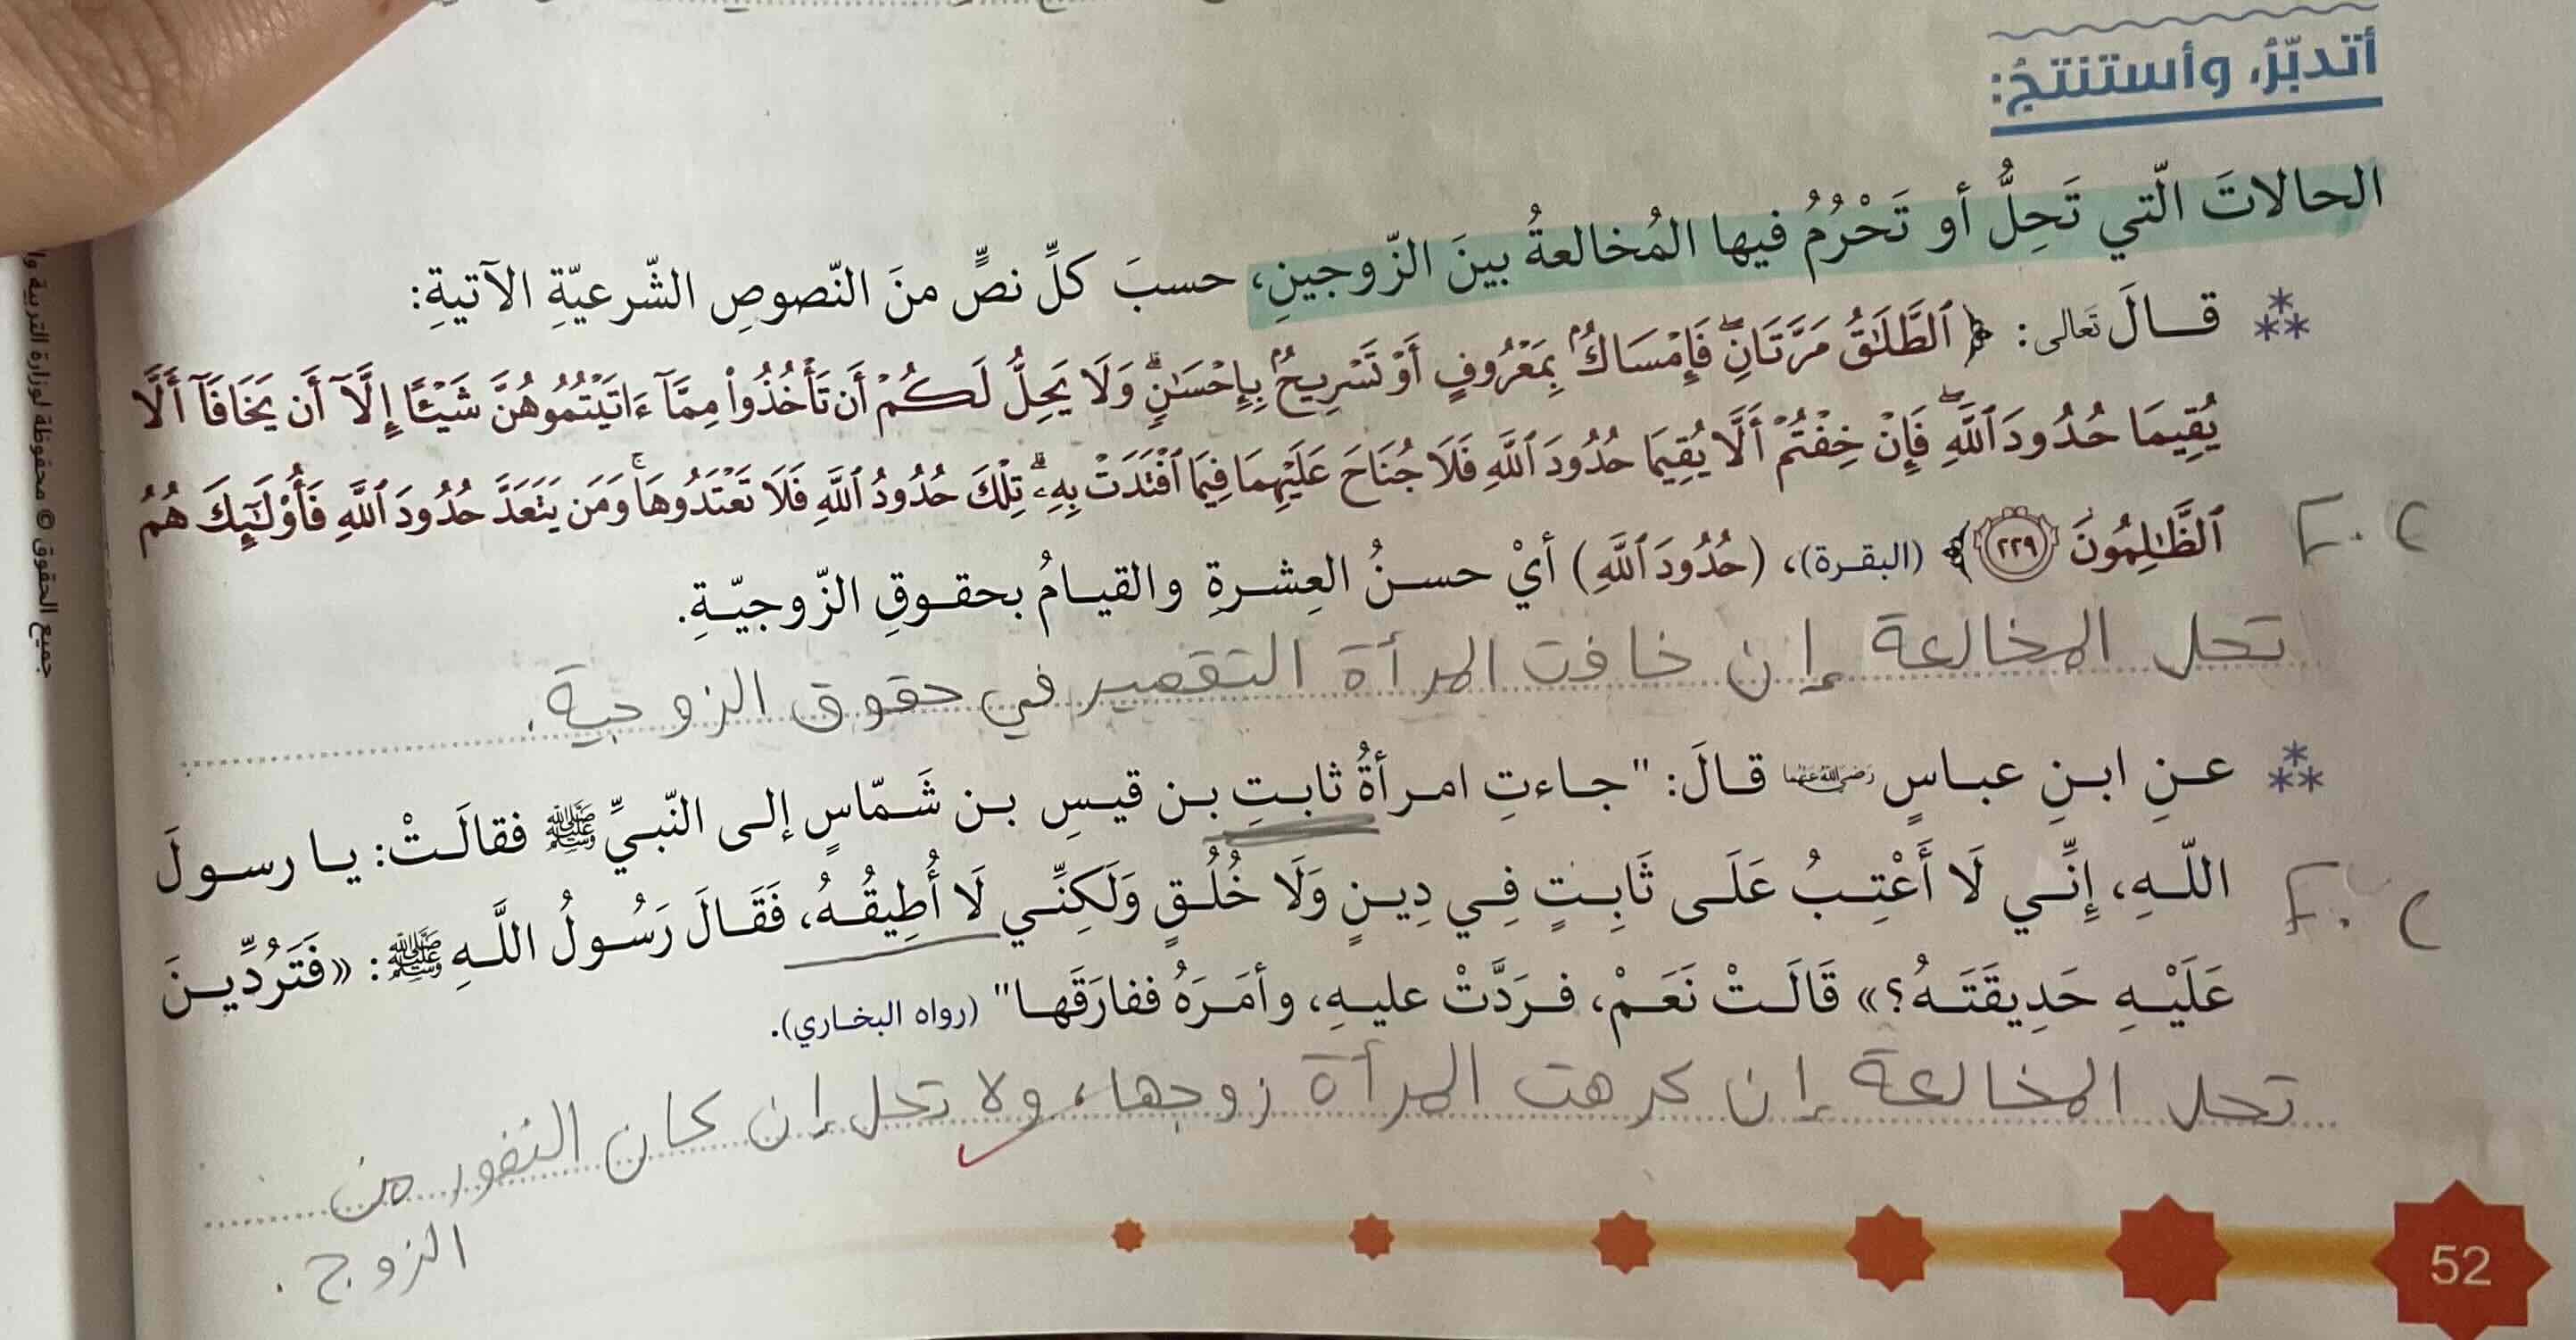 أتدبّرُ، وأستنتجُ:
الحالاتَ الّتي تَحِلُّ أو تَحْرُمُ فيها المُخالعةُ بينَ الزّوجينِ، حسبَ كلِّ نصٍّ منَ النّصوصِ الشّرعيّةِ الآتيةِ:
قــالَ تَعَالى: ﴿ ٱلطَّلَٰقُ مَرَّتَانِۖ فَإِمْسَاكُۢ بِمَعْرُوفٍ أَوْ تَسْرِيحُۢ بِإِحْسَٰنٖۗ وَلَا يَحِلُّ لَكُمْ أَن تَأْخُذُوا۟ مِمَّآ ءَاتَيْتُمُوهُنَّ شَيْـًٔا إِلَّآ أَن يَخَافَآ أَلَّا
يُقِيمَا حُدُودَ ٱللَّهِۖ فَإِنْ خِفْتُمْ أَلَّا يُقِيمَا حُدُودَ ٱللَّهِ فَلَا جُنَاحَ عَلَيْهِمَا فِيمَا ٱفْتَدَتْ بِهِۦۗ تِلْكَ حُدُودُ ٱللَّهِ فَلَا تَعْتَدُوهَاۚ وَمَن يَتَعَدَّ حُدُودَ ٱللَّهِ فَأُو۟لَٰٓئِكَ هُمُ
ٱلظَّٰلِمُونَ ٢٢٩ ﴾ (البقـرة)، (حُدُودَ ٱللَّهِ) أيْ حسـنُ العِشـرةِ والقيـامُ بحقـوقِ الزّوجيّـةِ.
تحل المخالعة إن خافت المرأة التقصير في حقوق الزوجية.
عـنِ ابـنِ عبـاسٍ رضي الله عنهما قـالَ: "جـاءتِ امـرأةُ ثابـتِ بـن قيـسِ بـن شَـمّاسٍ إلـى النّبـيِّ ﷺ فقالَـتْ: يـا رسـولَ
اللّـهِ، إِنِّـي لَا أَعْتِـبُ عَلَـى ثَابِـتٍ فِـي دِيـنٍ وَلَا خُلُـقٍ وَلَكِنِّـي لَا أُطِيقُـهُ، فَقَـالَ رَسُـولُ اللَّـهِ ﷺ: «فَتَرُدِّيـنَ
عَلَيْـهِ حَدِيقَتَـهُ؟» قَالَـتْ نَعَـمْ، فـرَدَّتْ عليـهِ، وأمَـرَهُ ففارَقَهـا" (رواه البخـاري).
تحل المخالعة إن كرهت المرأة زوجها، ولا تحل إن كان النفور من
الزوج.
52
جميع الحقوق © محفوظة لوزارة التربية